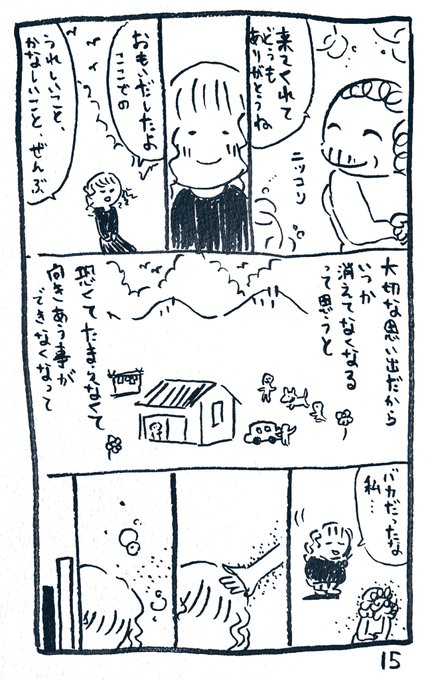 来てくれて
どうも
ありがとうね
ニッコリ
おもいだしたよ
ここでの
うれしいこと、
かなしいこと、ぜんぶ
大切な思い出だから
いつか
消えてなくなる
って思うと
恐くてたまらなくて
向きあう事が
できなくなって
バカだったな
私…
15